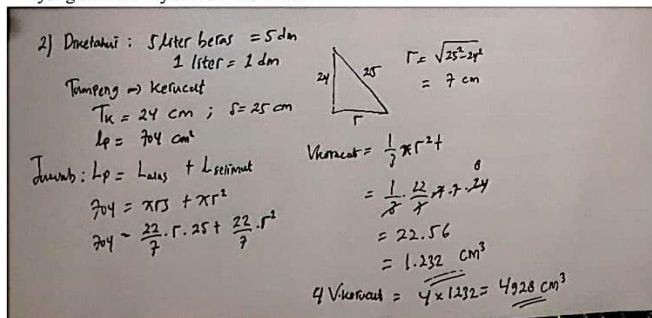 2) Diketahui : 5 liter beras = 5 dm
1 liter = 1 dm
Tumpeng => kerucut
Tk = 24 cm ; s = 25 cm
Lp = 704 cm²
Jawab : Lp = Lalas + Lselimut
704 = πrs + πr²
704 = 22/7 . r . 25 + 22/7 . r²
24
25
r
r = √25²-24²
= 7 cm
Vkerucut = 1/3 πr²t
= 1/3 . 22/7 . 7 . 7 . 24 8
= 22.56
= 1.232 cm³
4 V.kerucut = 4 x 1232 = 4928 cm³